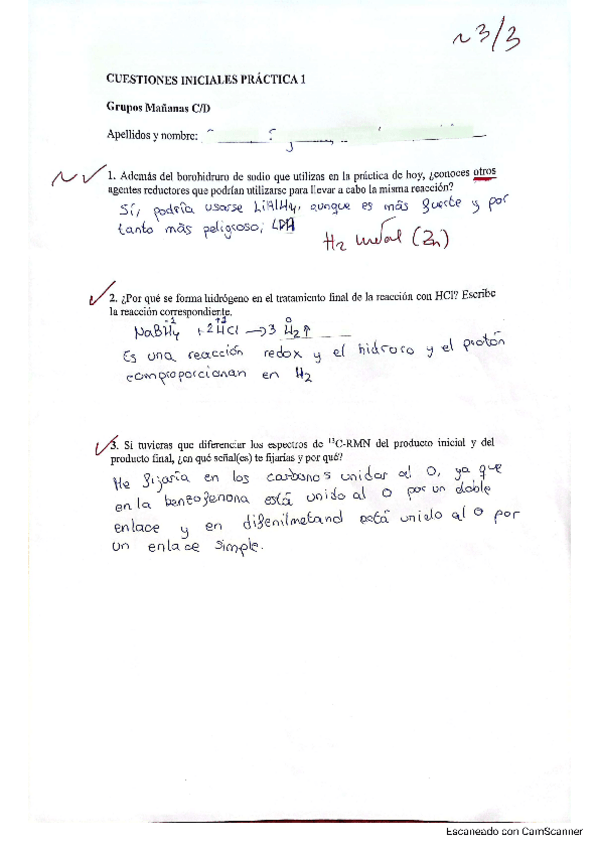 ~ 3/3
CUESTIONES INICIALES PRÁCTICA 1
Grupos Mañanas C/D
Apellidos y nombre:
1. Además del borohidruro de sodio que utilizas en la práctica de hoy, ¿conoces otros
agentes reductores que podrían utilizarse para llevar a cabo la misma reacción?
Sí, podría usarse LiAlHy, aunque es más fuerte y por
tanto más peligroso; LDA
H2 metal (Zn)
2. ¿Por qué se forma hidrógeno en el tratamiento final de la reacción con HCl? Escribe
la reacción correspondiente.
-1 +1 0
NaBHy + 2HCl → 3 H2↑ _ _ _
Es una reacción redox y el hidruro y el protón
comproporcionan en H2
3. Si tuvieras que diferenciar los espectros de ¹³C-RMN del producto inicial y del
producto final, ¿en qué señal(es) te fijarías y por qué?
Me fijaría en los carbonos unidos al O, ya que
en la benzofenona está unido al O por un doble
enlace y en difenilmetanol está unido al O por
un enlace simple.
Escaneado con CamScanner